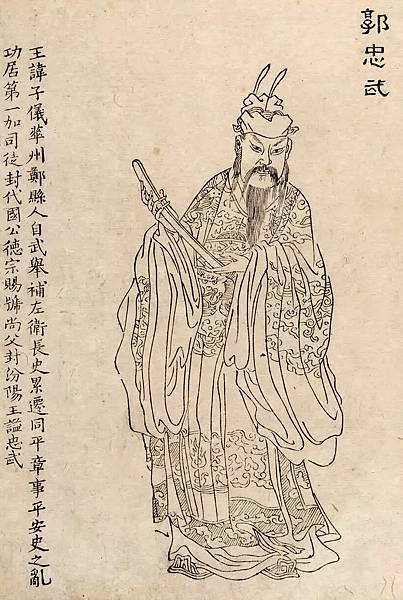 郭忠武
王諱子儀華州鄭縣人自武舉補左衛長史累遷同平章事平安史之亂
功居第一加司徒封代國公德宗賜號尚父封汾陽王謚忠武